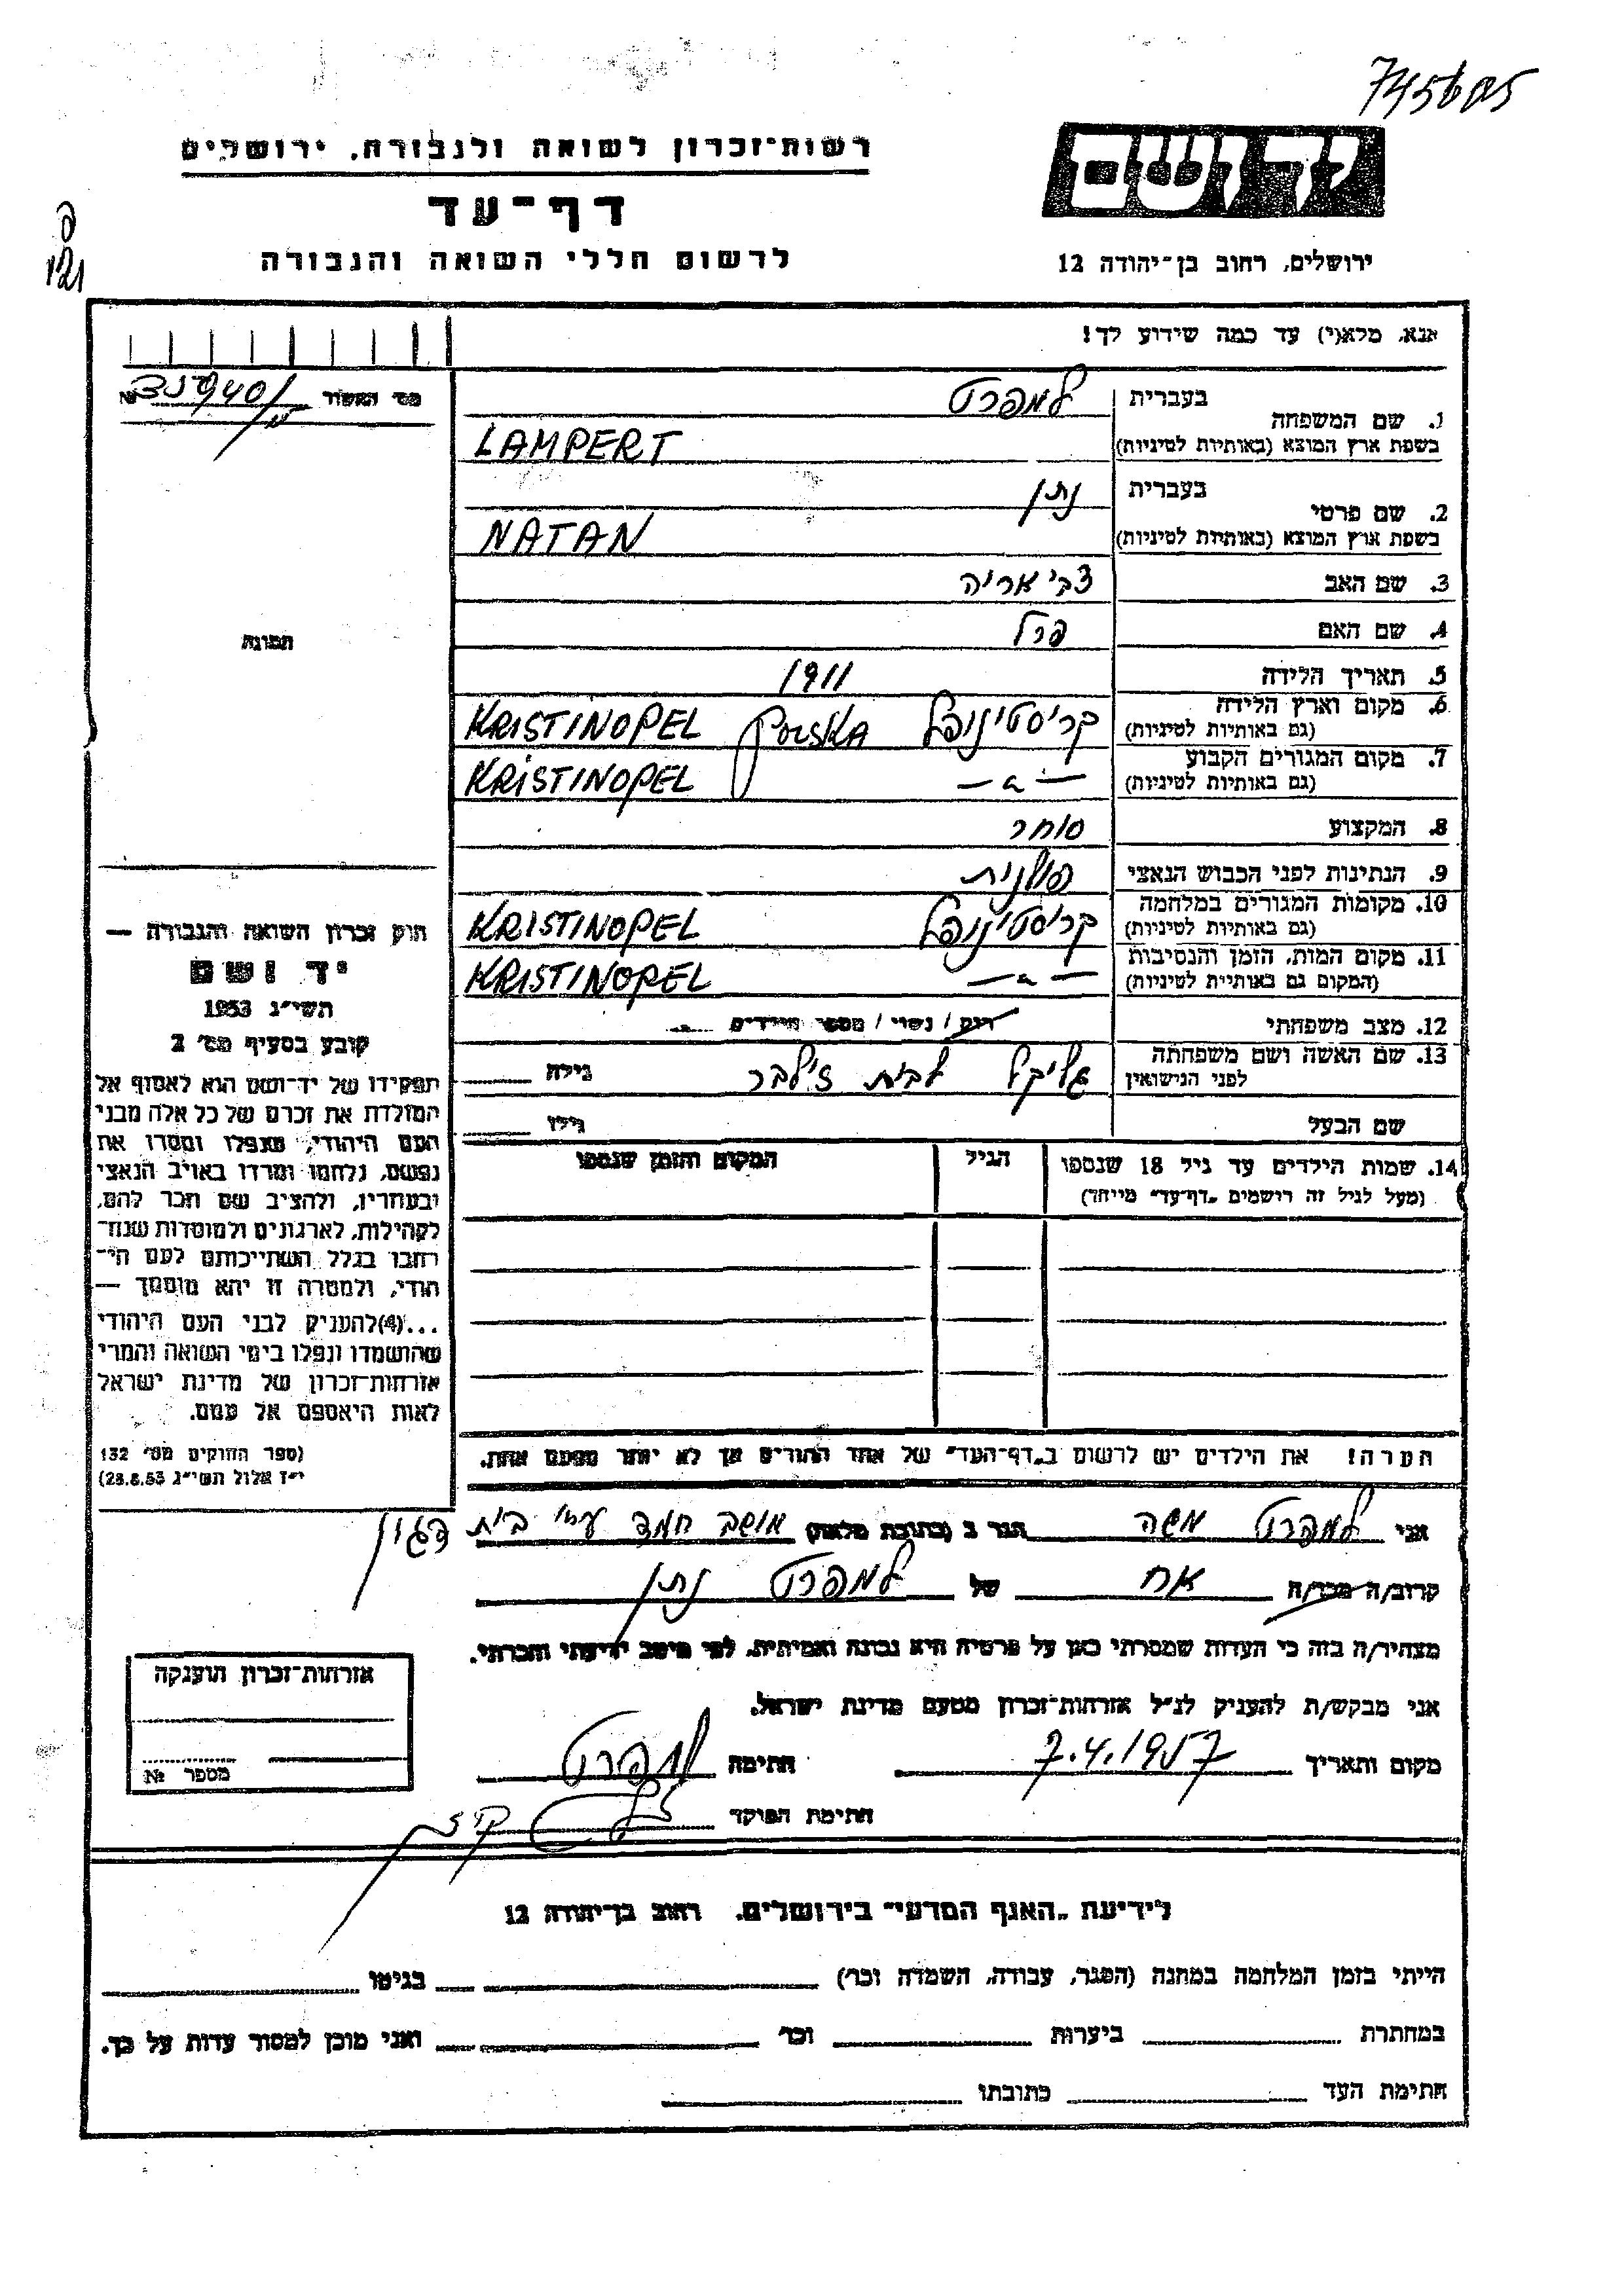 7456125
רשות־זכרון לשואה ולגבורה, ירושלים
יד ושם
דף־עד
לרשום חללי השואה והגבורה
ירושלים, רחוב בן־יהודה 12
אנא, מלא(י) עד כמה שידוע לך!
בעברית למפרט
1. שם המשפחה
בשפת ארץ המוצא (באותיות לטיניות) LAMPERT
בעברית נתן
2. שם פרטי
בשפת ארץ המוצא (באותיות לטיניות) NATAN
3. שם האב צבי אריה
4. שם האם פרל
5. תאריך הלידה 1911
6. מקום וארץ הלידה
(גם באותיות לטיניות) קריסטינופל POLSKA KRISTINOPEL
7. מקום המגורים הקבוע
(גם באותיות לטיניות) — " — KRISTINOPEL
8. המקצוע סוחר
9. הנתינות לפני הכבוש הנאצי פולנית
10. מקומות המגורים במלחמה
(גם באותיות לטיניות) קריסטינופל KRISTINOPEL
11. מקום המות, הזמן והנסיבות
(המקום גם באותיות לטיניות) — " — KRISTINOPEL
12. מצב משפחתי רווק / נשוי / מספר הילדים
13. שם האשה ושם משפחתה
לפני הנישואין גליקל לבית זילבר גילה
שם הבעל גילו
14. שמות הילדים עד גיל 18 שנספו הגיל המקום והזמן שנספו
(מעל לגיל זה רישמים „דף־עד" מייחד)
הערה! את הילדים יש לרשום ב„דף־העד" של אחד ההורים אך לא יותר מפעם אחת.
מס' האשור №
תמונה
חוק זכרון השואה והגבורה —
יד ושם
תשי"ג 1953
קובע בסעיף מס' 2
תפקידו של יד־ושם הוא לאסוף אל
המולדת את זכרם של כל אלה מבני
העם היהודי, שנפלו ומסרו את
נפשם, נלחמו ומרדו באויב הנאצי
ובעוזריו, ולהציב שם וזכר להם,
לקהילות, לארגונים ולמוסדות שנח־
רבו בגלל השתייכותם לעם הי־
הודי, ולמטרה זו יהא מוסמך —
...(4)להעניק לבני העם היהודי
שהושמדו ונפלו בימי השואה והמרי
אזרחות־זכרון של מדינת ישראל
לאות היאספם אל עמם.
(ספר החוקים מס' 132
י"ז אלול תשי"ג 28.8.53)
אני למפרט משה הגר ב (כתובת מלאה) מושב חמד ע"י בית דגון
קרוב/ה מכר/ה אח של למפרט נתן
מצהיר/ה בזה כי העדות שמסרתי כאן על פרטיה היא נכונה ואמיתית, לפי מיטב ידיעתי והכרתי.
אני מבקש/ת להעניק לנ"ל אזרחות־זכרון מטעם מדינת ישראל.
מקום ותאריך 7.4.1957 חתימה למפרט
חתימת הפוקד
אזרחות־זכרון הוענקה
מספר №
לידיעת „האגף המדעי" בירושלים, רחוב בן־יהודה 12
הייתי בזמן המלחמה במחנה (הסגר, עבודה, השמדה וכו') בגיטו
במחתרת ביערות וכו' ואני מוכן למסור עדות על כך.
חתימת העד כתובתו